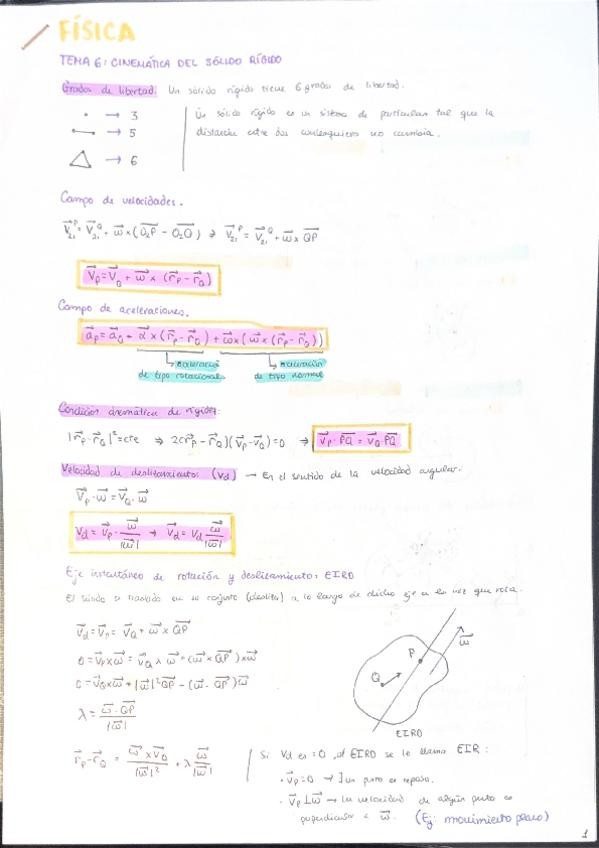 FÍSICA
TEMA 6: CINEMÁTICA DEL SÓLIDO RÍGIDO
Grados de libertad: Un sólido rígido tiene 6 grados de libertad.
· → 3
→ 5
→ 6
Un sólido rígido es un sistema de partículas tal que la
distancia entre dos cualesquiera no cambia.
Campo de velocidades.
V₂₁ᴾ = V₂₁ᵠ + ω x (O₂P - O₂Q) ⇒ V₂₁ᴾ = V₂₁ᵠ + ω x QP
V_P = V_Q + ω x (r_P - r_Q)
Campo de aceleraciones.
a_P = a_Q + α x (r_P - r_Q) + ω x (ω x (r_P - r_Q))
aceleración aceleración
de tipo rotacional de tipo normal
Condición cinemática de rigidez:
|r_P - r_Q|² = cte ⇒ 2(r_P - r_Q)(v_P - v_Q) = 0 ⇒ v_P · PQ = v_Q · PQ
Velocidad de deslizamiento: (Vd) → En el sentido de la velocidad angular.
V_P · ω = V_Q · ω
Vd = V_P · ω/|ω| → Vd = Vd ω/|ω|
Eje instantáneo de rotación y deslizamiento: EIRD
El sólido se traslada en su conjunto (desliza) a lo largo de dicho eje a la vez que rota.
Vd = V_P = V_Q + ω x QP
0 = V_P x ω = V_Q x ω + (ω x QP) x ω
0 = V_Q x ω + |ω|² QP - (ω · QP) ω
λ = ω · QP / |ω|
r_P - r_Q = ω x V_Q / |ω|² + λ ω/|ω|
P
Q
ω
EIRD
Si Vd es = 0, al EIRD se le llama EIR:
· V_P = 0 → ∃ un punto en reposo.
· V_P ⊥ ω → La velocidad de algún punto es
perpendicular a ω. (Ej: movimiento plano)
1